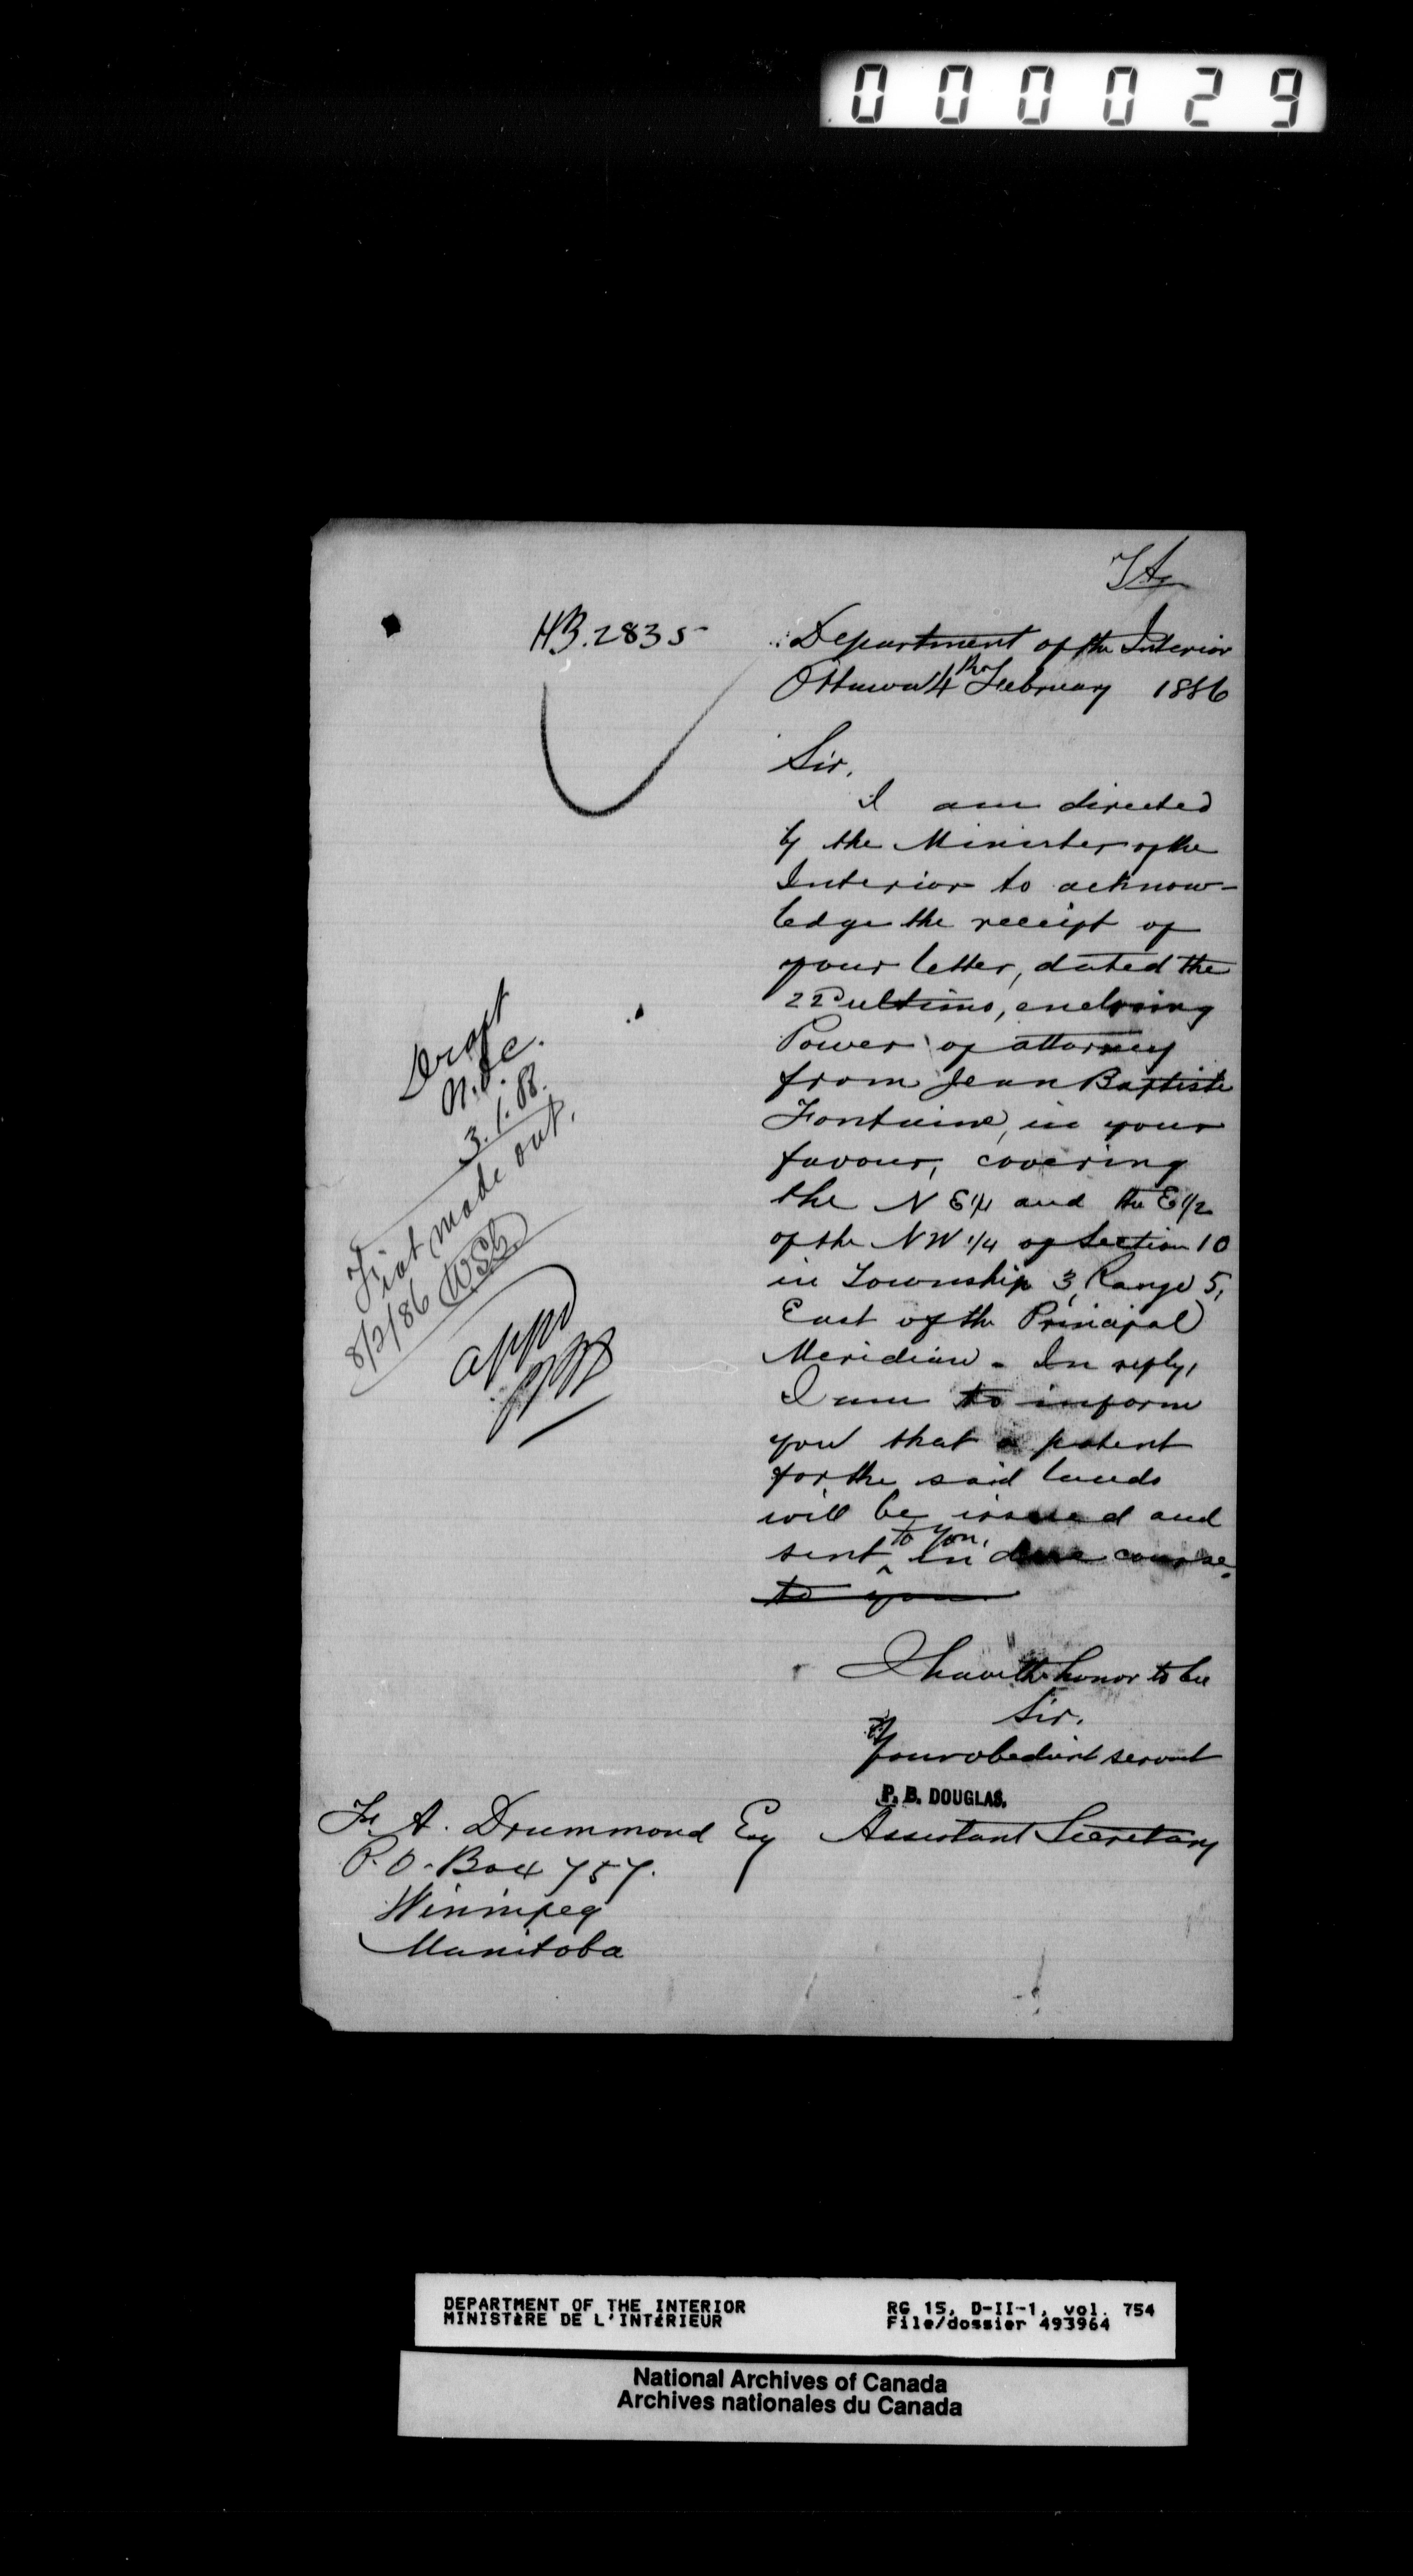 000029
HB. 2835
Department of the Interior
Ottawa 4th February 1886
Sir,
I am directed
by the Minister of the
Interior to acknow-
ledge the receipt of
your letter, dated the
22d ultimo, enclosing
Power of attorney
from Jean Baptiste
Fontaine, in your
favour, covering
the N E 1/4 and the E 1/2
of the N W 1/4 of Section 10
in Township 3, Range 5,
East of the Principal
Meridian. In reply,
I am to inform
you that a patent
for the said lands
will be issued and
sent to you, in due course.
to you
I have the honor to be
Sir.
Your obedient servant
P. B. DOUGLAS.
Assistant Secretary
A. Drummond Esq
P.O. Box 757.
Winnipeg
Manitoba
Draft
Fiat made out.
8/2/86
appd
DEPARTMENT OF THE INTERIOR
MINISTÈRE DE L'INTÉRIEUR
RG 15, D-II-1, vol. 754
File/dossier 493964
National Archives of Canada
Archives nationales du Canada